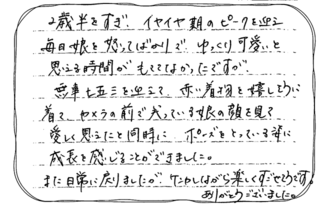 2歳半をすぎ、イヤイヤ期のピークを迎え
毎日娘を怒ってばかりで ゆっくり可愛いと
思える時間がもてなかったですが、
無事七五三を迎えて、赤い着物を嬉しそうに
着て、カメラの前で笑っている娘の顔を見て
愛しく思えたと同時に ポーズをとっている姿に
成長を感じることができました。
また日常に戻りましたが、ケンカしながら楽しくすごせそうです。
ありがとうございました。